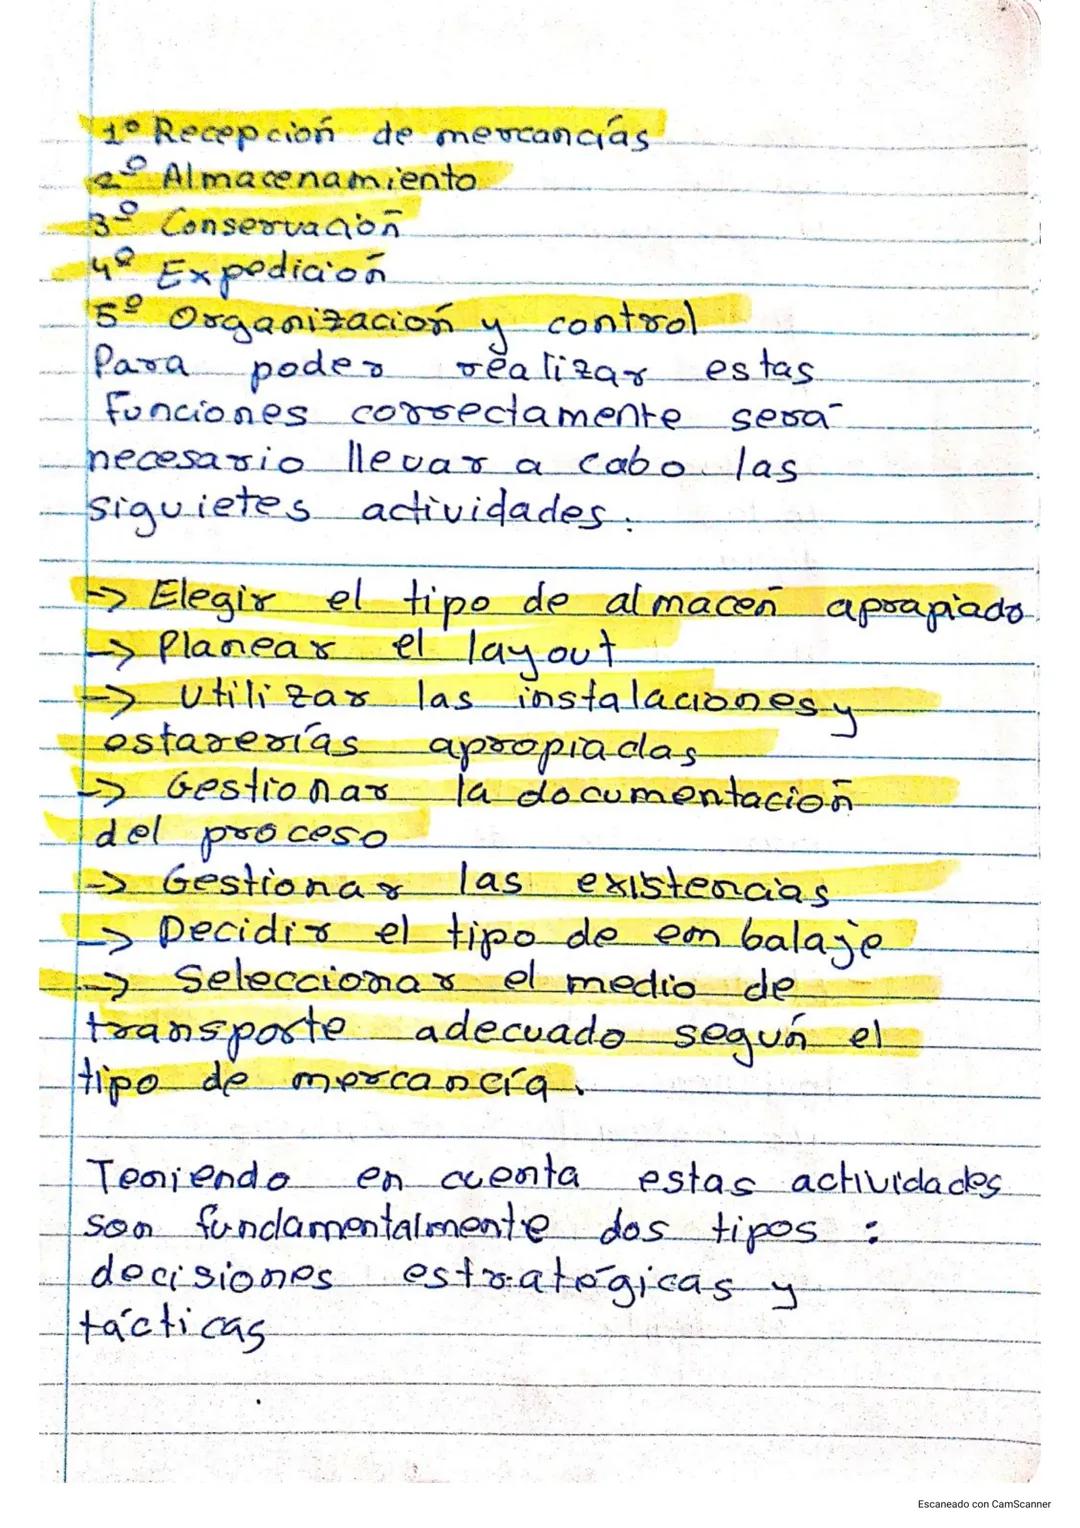 1º Recepción de mercancías
2º Almacenamiento
3º Conservación
4º Expedición
5º Organización y control
Para poder realizar estas
funciones correctamente será
necesario llevar a cabo las
siguietes actividades:
→ Elegir el tipo de almacen aprapiado
→ Planear el layout
→ Utilizar las instalaciones y
estarerías apropiadas
→ Gestionar la documentación
del proceso
→ Gestionar las existencias
→ Decidir el tipo de embalaje
→ Seleccionar el medio de
transporte adecuado según el
tipo de mercancía.
Teniendo en cuenta estas actividades
son fundamentalmente dos tipos:
decisiones estratégicas y
tácticas
Escaneado con CamScanner